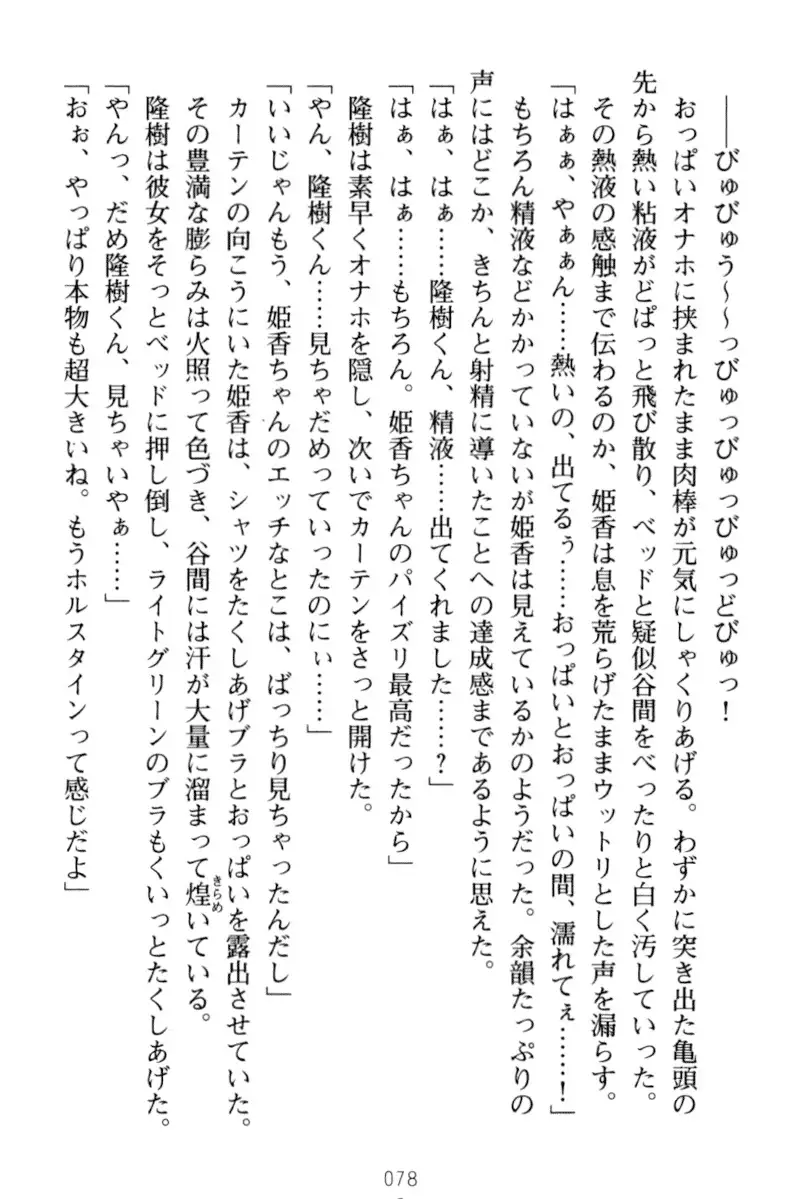 ――びゅびゅう～～っびゅっびゅっびゅっどびゅっ！
おっぱいオナホに挟まれたまま肉棒が元気にしゃくりあげる。わずかに突き出た亀頭の
先から熱い粘液がどぱっと飛び散り、ベッドと疑似谷間をべったりと白く汚していった。
その熱液の感触まで伝わるのか、姫香は息を荒らげたままウットリとした声を漏らす。
「はぁぁ、やぁぁん……熱いの、出てるぅ……おっぱいとおっぱいの間、濡れてぇ……！」
もちろん精液などかかっていないが姫香は見えているかのようだった。余韻たっぷりの
声にはどこか、きちんと射精に導いたことへの達成感まであるように思えた。
「はぁ、はぁ……隆樹くん、精液……出てくれました……？」
「はぁ、はぁ……もちろん。姫香ちゃんのパイズリ最高だったから」
隆樹は素早くオナホを隠し、次いでカーテンをさっと開けた。
「やん、隆樹くん……見ちゃだめっていったのにぃ……」
「いいじゃんもう、姫香ちゃんのエッチなとこは、ばっちり見ちゃったんだし」
カーテンの向こうにいた姫香は、シャツをたくしあげブラとおっぱいを露出させていた。
その豊満な膨らみは火照って色づき、谷間には汗が大量に溜まって煌いている。
きらめ
隆樹は彼女をそっとベッドに押し倒し、ライトグリーンのブラもくいっとたくしあげた。
「やんっ、だめ隆樹くん、見ちゃいやぁ……」
「おぉ、やっぱり本物も超大きいね。もうホルスタインって感じだよ」
078